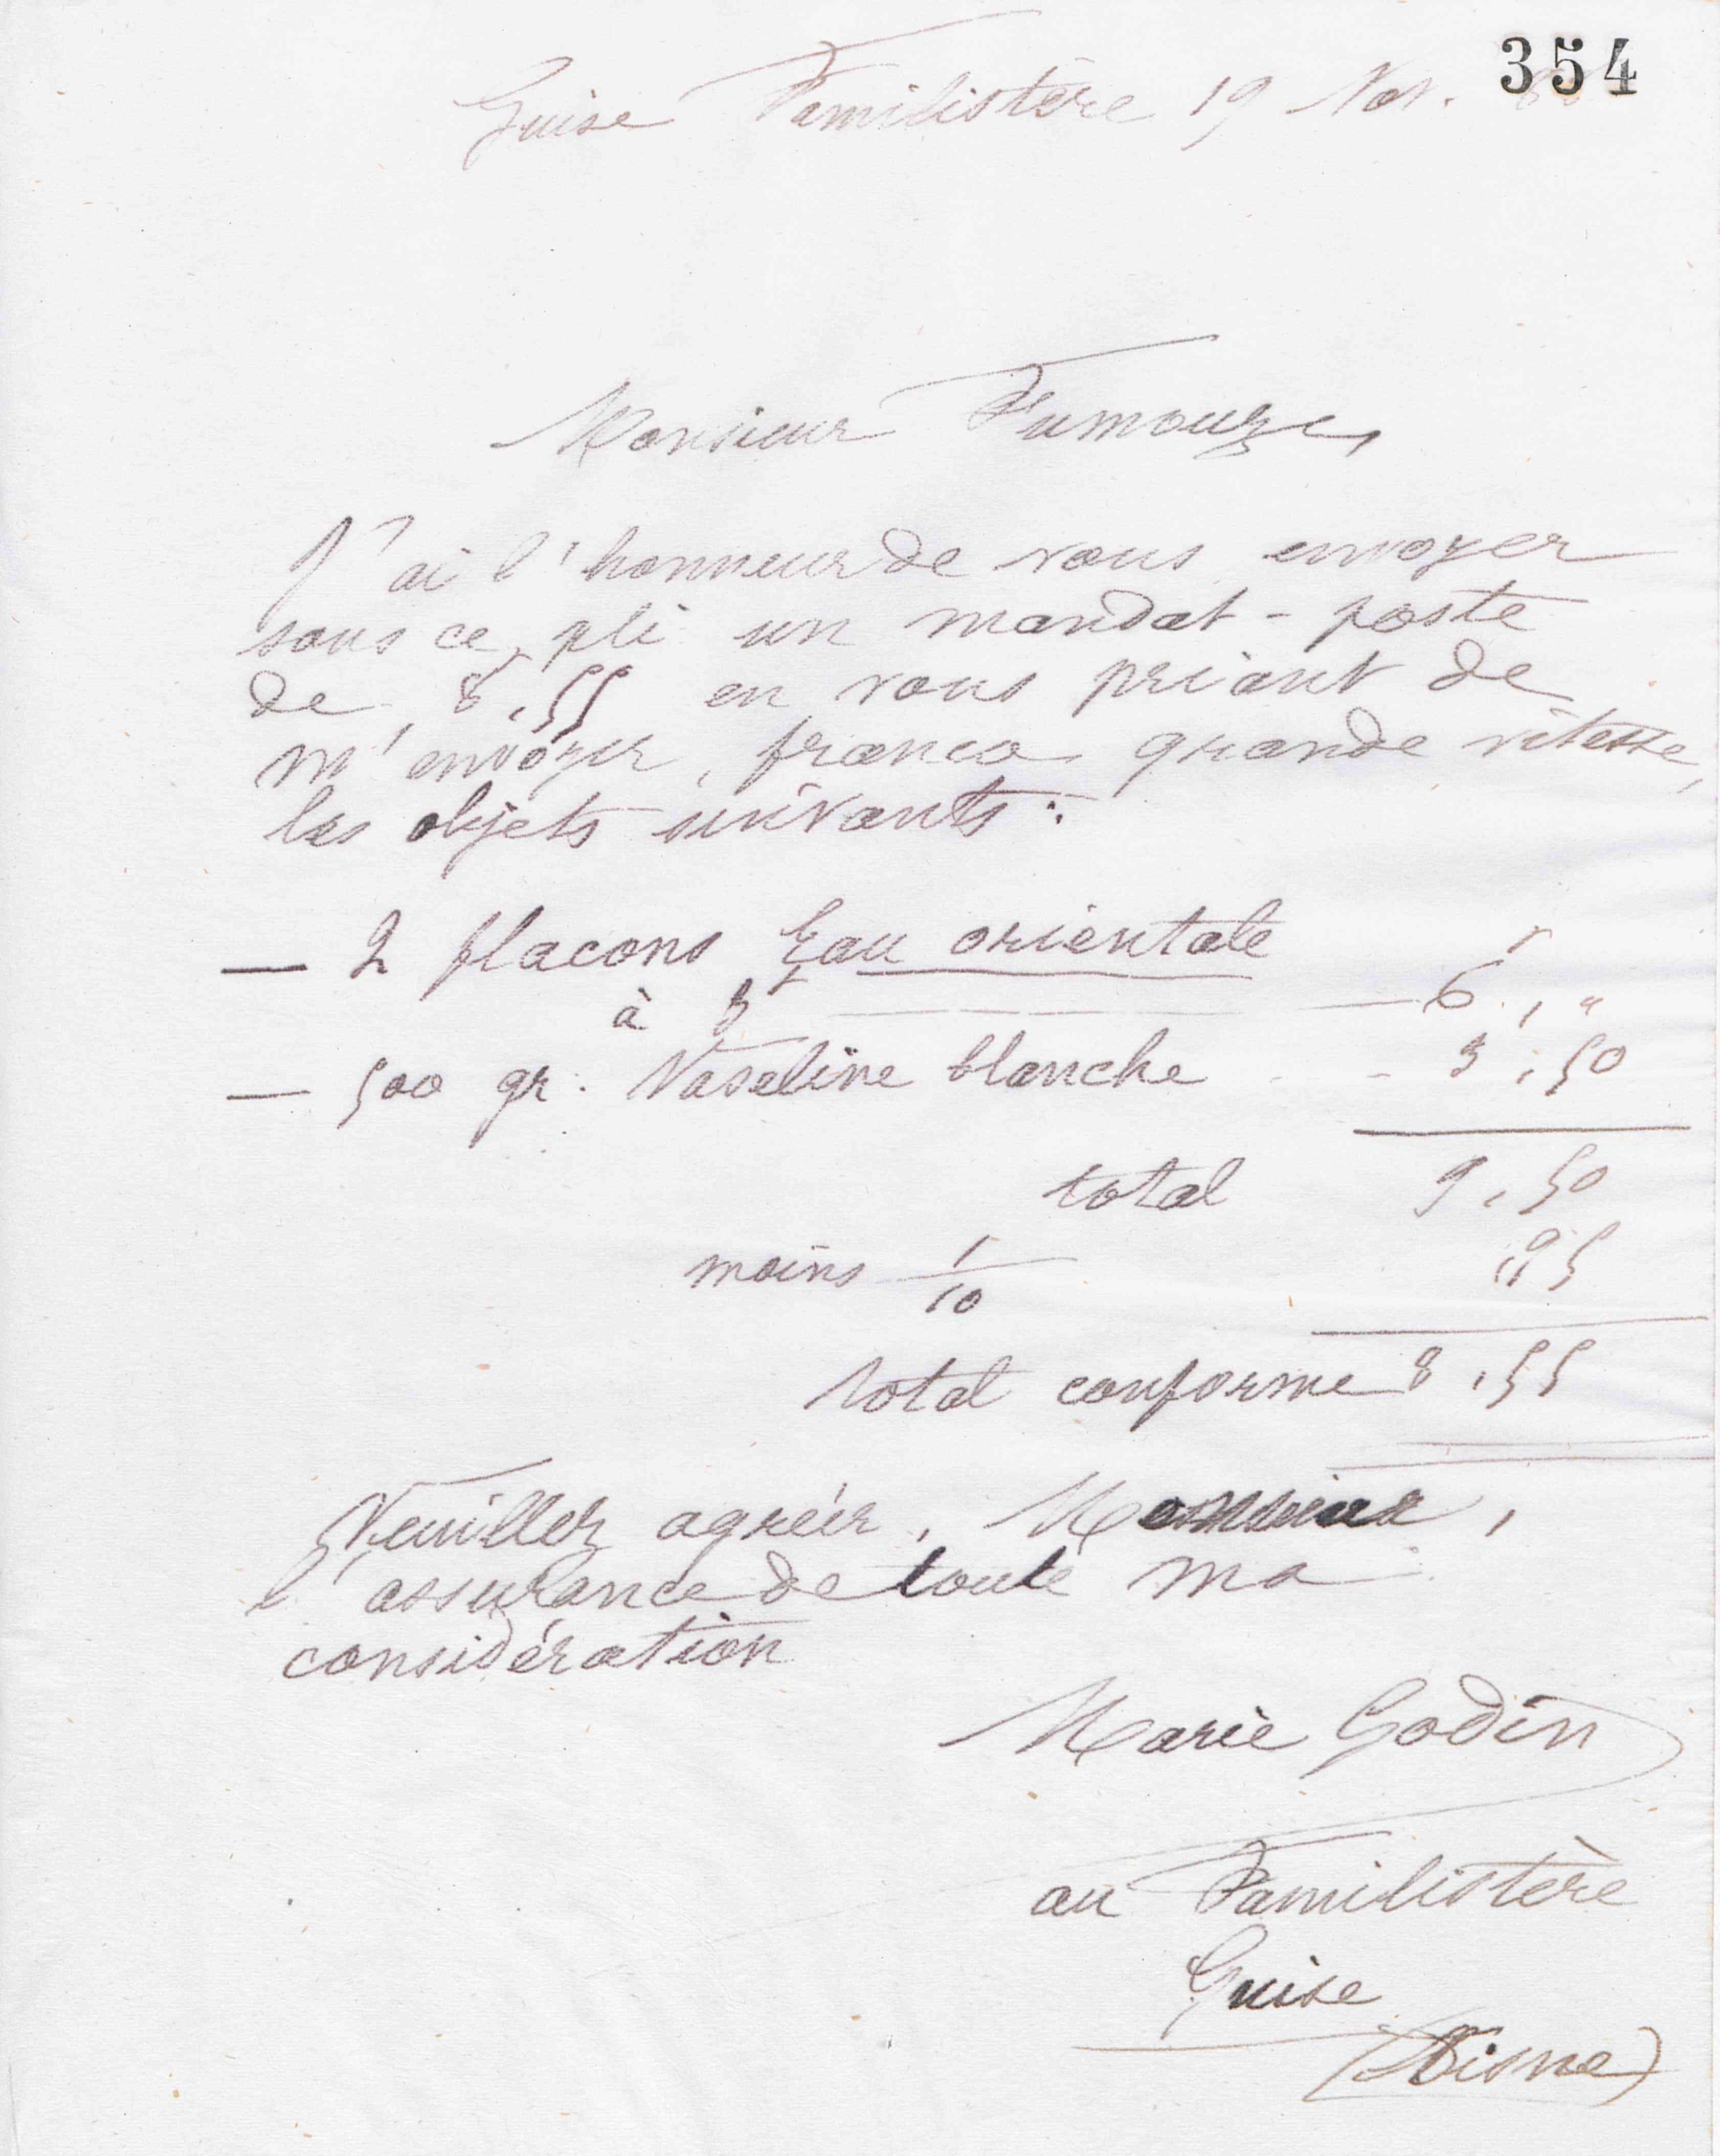 354
Guise Familistère 19 Nov.
Monsieur Fumouze,
J'ai l'honneur de vous envoyer
sous ce pli un mandat-poste
de 8,55 en vous priant de
m'envoyer, franco grande vitesse,
les objets suivants :
— 2 flacons Eau orientale
à 3f — 6f,"
— 500 gr. Vaseline blanche - - 3,50
total 9,50
moins 1/10 ,95
total conforme 8,55
Veuillez agréer, Monsieur,
l'assurance de toute ma
considération
Marie Godin
au Familistère
Guise
(Aisne)